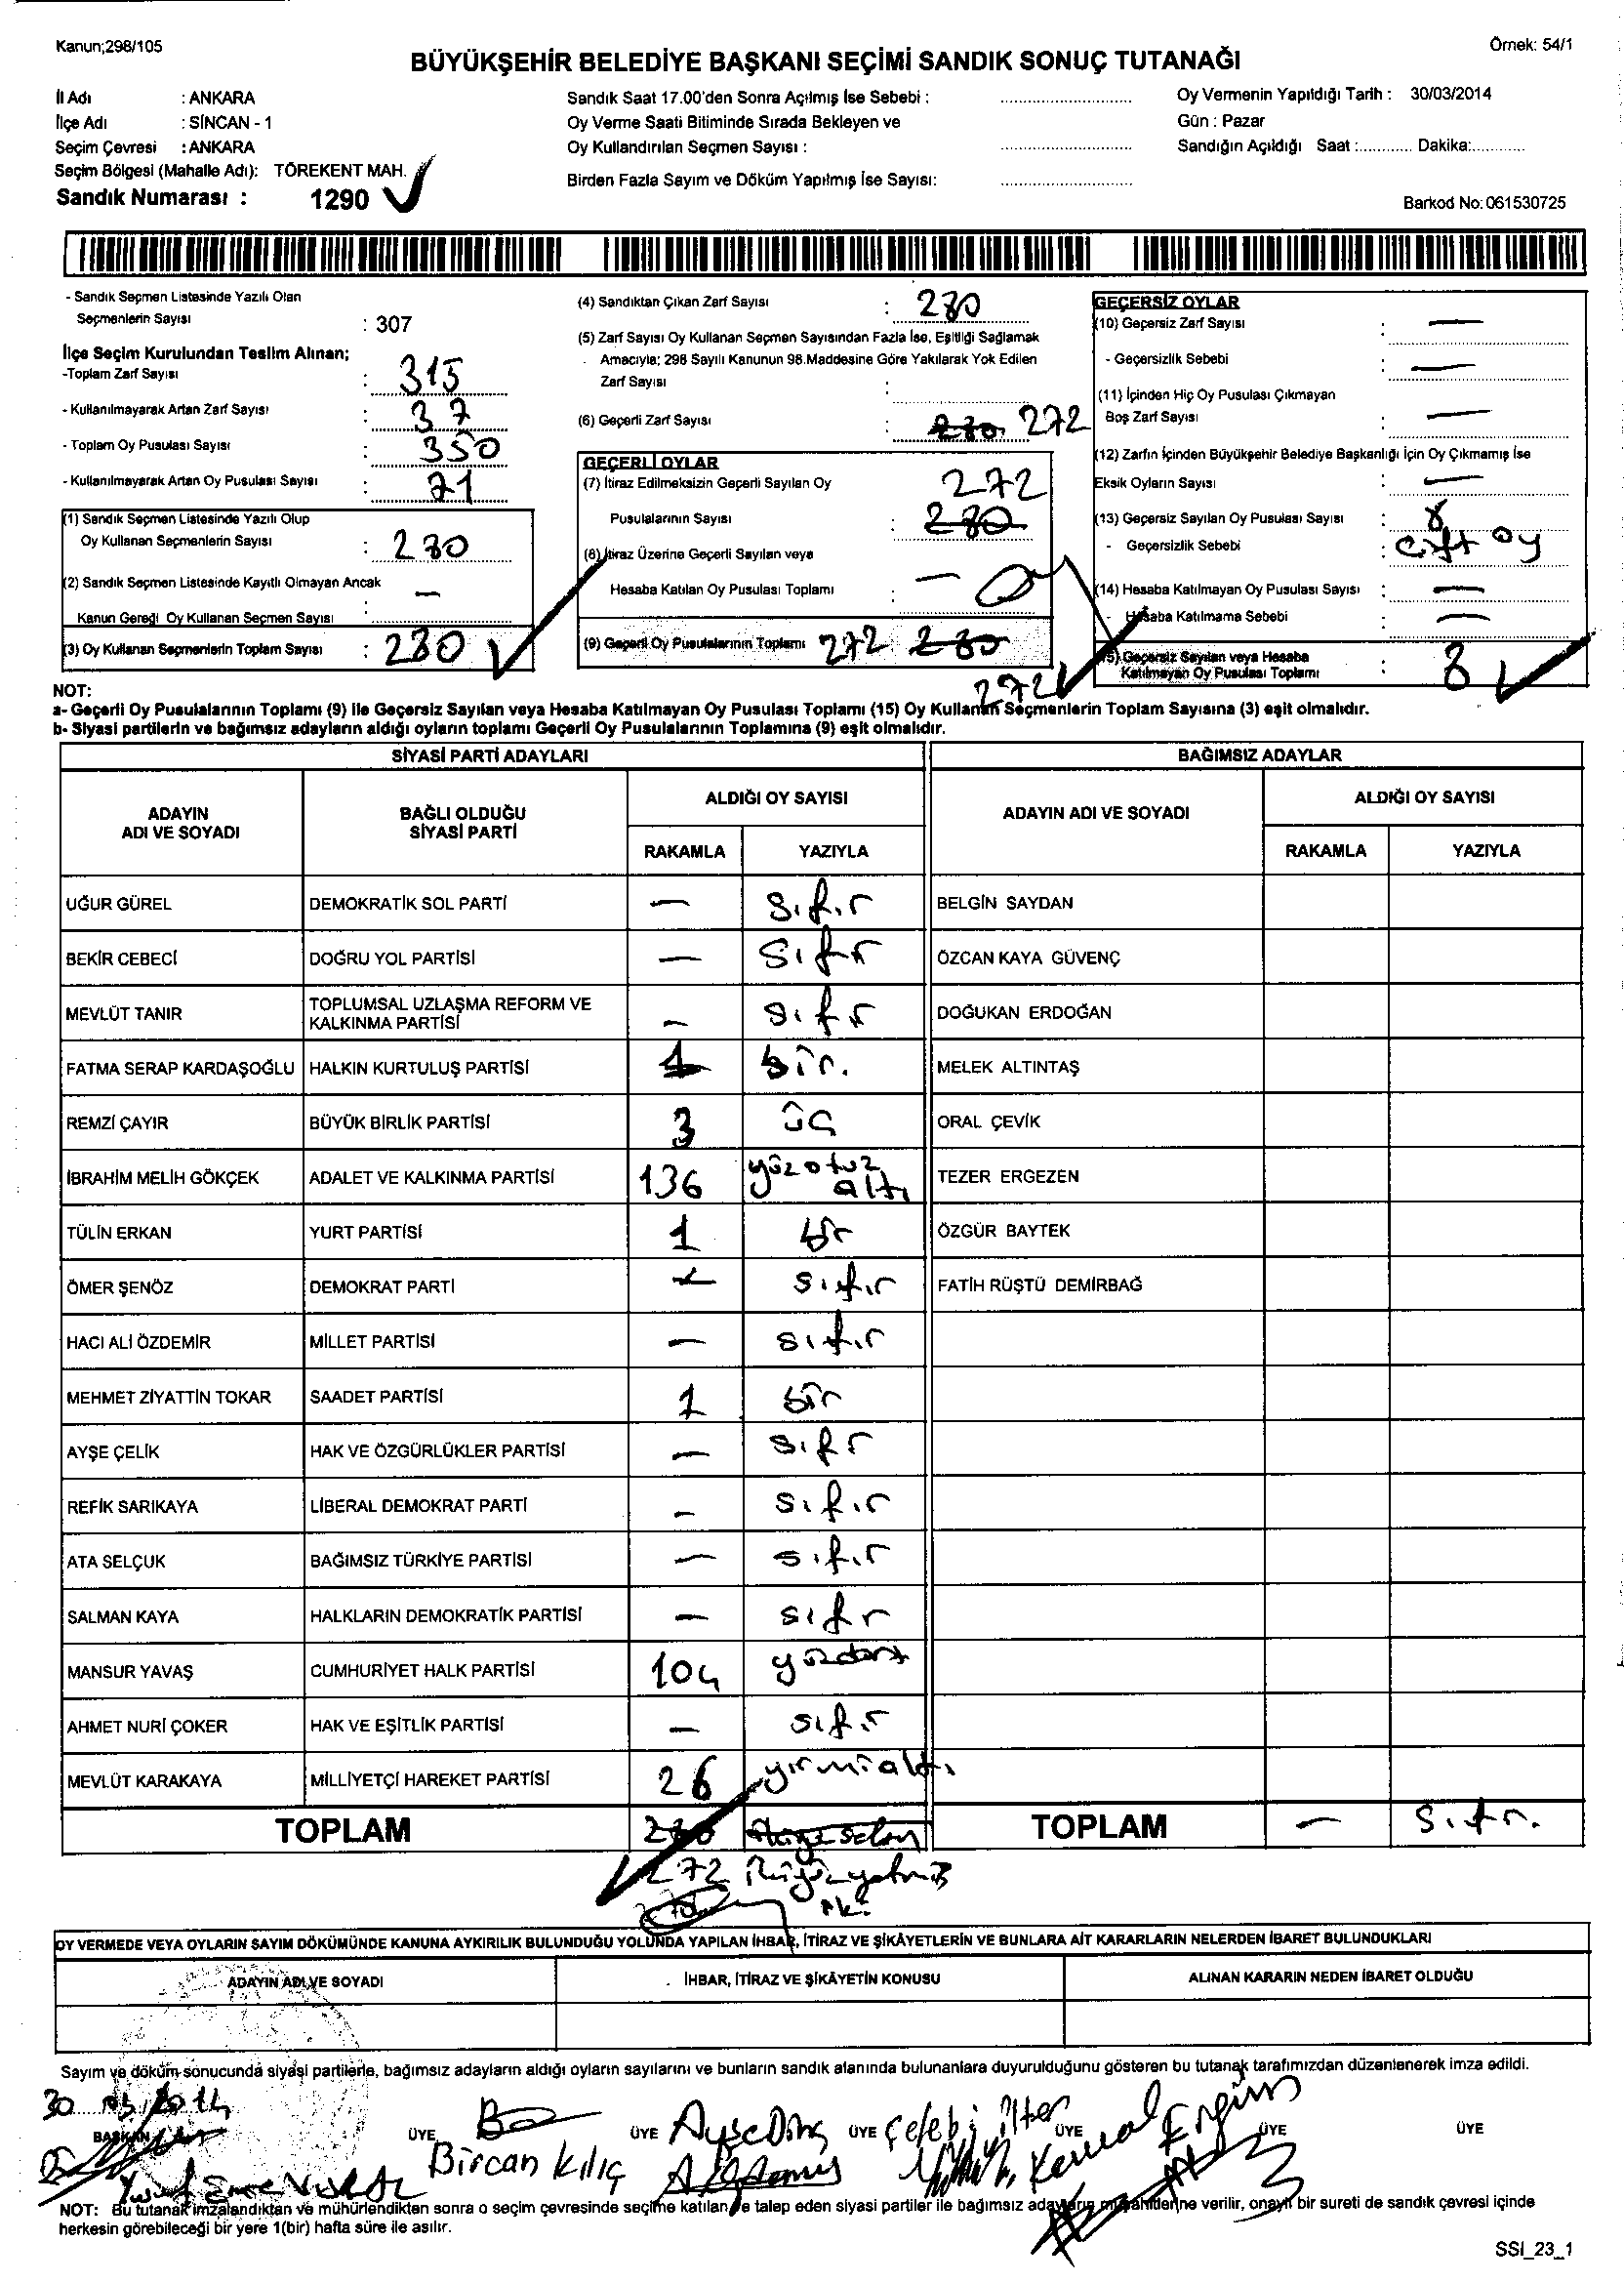 Kanun;298/105
Örnek: 54/1
BÜYÜKŞEHİR BELEDİYE BAŞKANI SEÇİMİ SANDIK SONUÇ TUTANAĞI
İl Adı : ANKARA
İlçe Adı : SİNCAN - 1
Seçim Çevresi : ANKARA
Seçim Bölgesi (Mahalle Adı): TÖREKENT MAH.
Sandık Numarası : 1290
Sandık Saat 17.00'den Sonra Açılmış İse Sebebi :
Oy Verme Saati Bitiminde Sırada Bekleyen ve
Oy Kullandırılan Seçmen Sayısı :
Birden Fazla Sayım ve Döküm Yapılmış İse Sayısı:
Oy Vermenin Yapıldığı Tarih : 30/03/2014
Gün : Pazar
Sandığın Açıldığı Saat :............ Dakika:...........
Barkod No: 061530725
- Sandık Seçmen Listesinde Yazılı Olan
Seçmenlerin Sayısı : 307
İlçe Seçim Kurulundan Teslim Alınan;
-Toplam Zarf Sayısı : 315
- Kullanılmayarak Artan Zarf Sayısı : 37
- Toplam Oy Pusulası Sayısı : 350
- Kullanılmayarak Artan Oy Pusulası Sayısı : 71
(1) Sandık Seçmen Listesinde Yazılı Olup
Oy Kullanan Seçmenlerin Sayısı : 280
(2) Sandık Seçmen Listesinde Kayıtlı Olmayan Ancak
Kanun Gereği Oy Kullanan Seçmen Sayısı : —
(3) Oy Kullanan Seçmenlerin Toplam Sayısı : 280
(4) Sandıktan Çıkan Zarf Sayısı : 280
(5) Zarf Sayısı Oy Kullanan Seçmen Sayısından Fazla İse, Eşitliği Sağlamak
Amacıyla; 298 Sayılı Kanunun 98.Maddesine Göre Yakılarak Yok Edilen
Zarf Sayısı :
(6) Geçerli Zarf Sayısı : 280 272
GEÇERLİ OYLAR
(7) İtiraz Edilmeksizin Geçerli Sayılan Oy 272
Pusulalarının Sayısı : 280
(8) İtiraz Üzerine Geçerli Sayılan veya
Hesaba Katılan Oy Pusulası Toplamı : — 0
(9) Geçerli Oy Pusulalarının Toplamı 272 280
272
GEÇERSİZ OYLAR
(10) Geçersiz Zarf Sayısı : —
- Geçersizlik Sebebi : —
(11) İçinden Hiç Oy Pusulası Çıkmayan
Boş Zarf Sayısı : —
(12) Zarfın İçinden Büyükşehir Belediye Başkanlığı İçin Oy Çıkmamış İse
Eksik Oyların Sayısı : —
(13) Geçersiz Sayılan Oy Pusulası Sayısı : 8
- Geçersizlik Sebebi : Çift oy
(14) Hesaba Katılmayan Oy Pusulası Sayısı : —
- Hesaba Katılmama Sebebi : —
(15) Geçersiz Sayılan veya Hesaba
Katılmayan Oy Pusulası Toplamı : 8
NOT:
a- Geçerli Oy Pusulalarının Toplamı (9) ile Geçersiz Sayılan veya Hesaba Katılmayan Oy Pusulası Toplamı (15) Oy Kullanan Seçmenlerin Toplam Sayısına (3) eşit olmalıdır.
b- Siyasi partilerin ve bağımsız adayların aldığı oyların toplamı Geçerli Oy Pusulalarının Toplamına (9) eşit olmalıdır.
SİYASİ PARTİ ADAYLARI
ADAYIN ADI VE SOYADI BAĞLI OLDUĞU SİYASİ PARTİ ALDIĞI OY SAYISI
RAKAMLA YAZIYLA
UĞUR GÜREL DEMOKRATİK SOL PARTİ — sıfır
BEKİR CEBECİ DOĞRU YOL PARTİSİ — sıfır
MEVLÜT TANIR TOPLUMSAL UZLAŞMA REFORM VE KALKINMA PARTİSİ — sıfır
FATMA SERAP KARDAŞOĞLU HALKIN KURTULUŞ PARTİSİ 1 bir.
REMZİ ÇAYIR BÜYÜK BİRLİK PARTİSİ 3 üç
İBRAHİM MELİH GÖKÇEK ADALET VE KALKINMA PARTİSİ 136 yüzotuz altı
TÜLİN ERKAN YURT PARTİSİ 1 bir
ÖMER ŞENÖZ DEMOKRAT PARTİ — sıfır
HACI ALİ ÖZDEMİR MİLLET PARTİSİ — sıfır
MEHMET ZİYATTİN TOKAR SAADET PARTİSİ 1 bir
AYŞE ÇELİK HAK VE ÖZGÜRLÜKLER PARTİSİ — sıfır
REFİK SARIKAYA LİBERAL DEMOKRAT PARTİ — sıfır
ATA SELÇUK BAĞIMSIZ TÜRKİYE PARTİSİ — sıfır
SALMAN KAYA HALKLARIN DEMOKRATİK PARTİSİ — sıfır
MANSUR YAVAŞ CUMHURİYET HALK PARTİSİ 104 yüzdört
AHMET NURİ ÇOKER HAK VE EŞİTLİK PARTİSİ — sıfır
MEVLÜT KARAKAYA MİLLİYETÇİ HAREKET PARTİSİ 26 yirmialtı
TOPLAM 280 ikiyüzseksen
272 ikiyüzyetmiş iki
BAĞIMSIZ ADAYLAR
ADAYIN ADI VE SOYADI ALDIĞI OY SAYISI
RAKAMLA YAZIYLA
BELGİN SAYDAN
ÖZCAN KAYA GÜVENÇ
DOĞUKAN ERDOĞAN
MELEK ALTINTAŞ
ORAL ÇEVİK
TEZER ERGEZEN
ÖZGÜR BAYTEK
FATİH RÜŞTÜ DEMİRBAĞ
TOPLAM — sıfır.
OY VERMEDE VEYA OYLARIN SAYIM DÖKÜMÜNDE KANUNA AYKIRILIK BULUNDUĞU YOLUNDA YAPILAN İHBAR, İTİRAZ VE ŞİKÂYETLERİN VE BUNLARA AİT KARARLARIN NELERDEN İBARET BULUNDUKLARI
ADAYIN ADI VE SOYADI İHBAR, İTİRAZ VE ŞİKÂYETİN KONUSU ALINAN KARARIN NEDEN İBARET OLDUĞU
Sayım ve döküm sonucunda siyasi partilerle, bağımsız adayların aldığı oyların sayılarını ve bunların sandık alanında bulunanlara duyurulduğunu gösteren bu tutanak tarafımızdan düzenlenerek imza edildi.
30 03/2014
BAŞKAN ÜYE ÜYE Ayşe Dinç ÜYE Çelebi İlter ÜYE Kemal Ergün ÜYE ÜYE
Bircan Kılıç
NOT: Bu tutanak imzalandıktan ve mühürlendikten sonra o seçim çevresinde seçime katılan ve talep eden siyasi partiler ile bağımsız adayların müşahitlerine verilir, onaylı bir sureti de sandık çevresi içinde
herkesin görebileceği bir yere 1(bir) hafta süre ile asılır.
SSİ_23_1